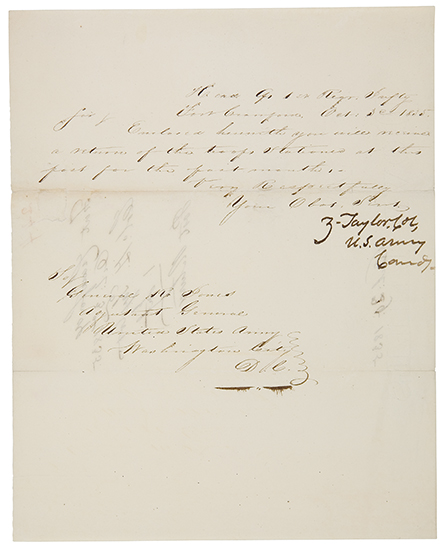 Head Qr 1st Regt. Infty
Fort Crawford Oct. 3d 1835
Sir
Enclosed herewith you will receive
a return of the troops stationed at this
post for the past month.
Very Respectfully
Your Obt. Servt.
Z-Taylor. Col,
U.S. Army
Comdg
To
General R. Jones
Adjutant General
United States Army
Washington City
D. C.